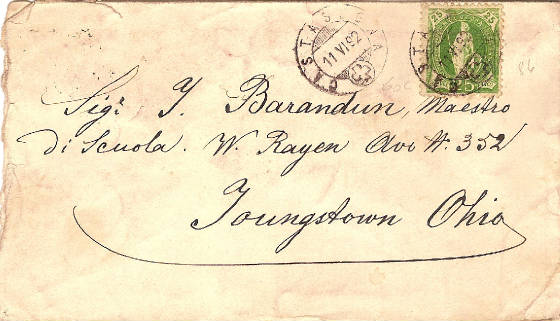 CASTASEGNA
11 VI 92
25 25
Sigr. J. Barandun, Maestro
di Scuola. W. Rayen Ave #. 352
Youngstown Ohio